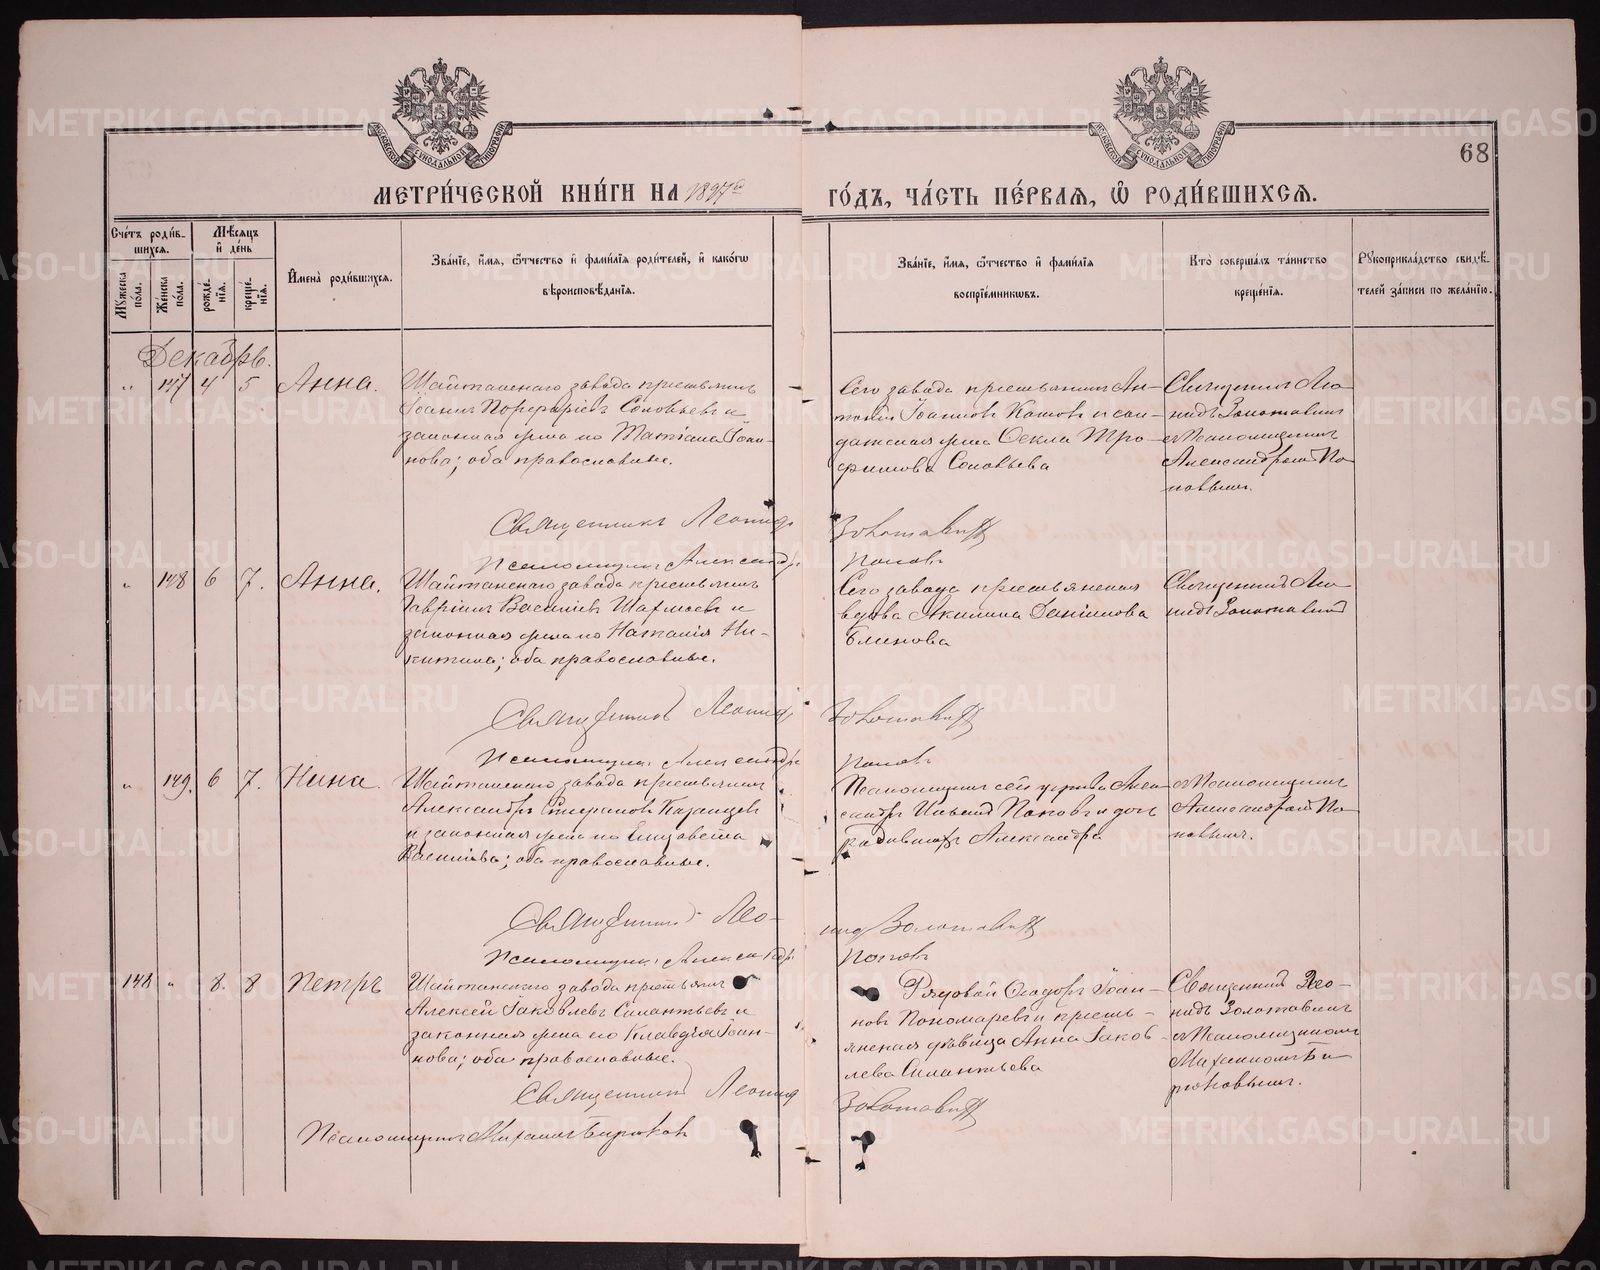 МОСКОВСКОЙ СѴНОДАЛЬНОЙ ТИПОГРАФІИ
МОСКОВСКОЙ СѴНОДАЛЬНОЙ ТИПОГРАФІИ
68
МЕТРИ́ЧЕСКОЙ КНИ́ГИ НА 1897й
ГО́ДЪ, ЧА́СТЬ ПЕ́РВАѦ, Ѡ҆ РОДИ́ВШИХСѦ.
Сче́тъ роди́в-
шихсѧ.
Мѣ́сѧцъ
и҆ де́нь
Мꙋ́жеска
по́ла.
Же́нска
по́ла.
рожде́-
нїѧ.
креще́-
нїѧ.
И҆мена̀ роди́вшихсѧ.
Зва́нїе, и҆́мѧ, ѻ҆́тчество и҆ фами́лїѧ роди́телей, и҆ како́гѡ
вѣроисповѣ́данїѧ.
Зва́нїе, и҆́мѧ, ѻ҆́тчество и҆ фами́лїѧ
воспрїе́мникѡвъ.
Кто̀ соверша́лъ та́инство
креще́нїѧ.
Рꙋкоприкла́дство свидѣ́-
телей за́писи по жела́нїю.
Декабрь.
" 147 4 5 Анна.
Шайтанскаго завода крестьянинъ
Іоаннъ Порфиріевъ Соловьевъ и
законная жена его Татіана Іоан-
нова; оба православные.
Сего завода крестьянинъ Ан-
тоній Іоанновъ Катовъ и сол-
датская жена Ѳекла Тро-
фимова Соловьева
Священникъ Лео-
нидъ Золотавинъ
съ Псаломщикомъ
Александромъ По-
повымъ.
Священникъ Леонидъ Золотавинъ
Псаломщикъ Александръ Поповъ
" 148 6 7. Анна.
Шайтанскаго завода крестьянинъ
Гавріилъ Василіевъ и
законная жена его Наталія Ни-
китина; оба православные.
Сего завода крестьянская
вдова Акилина Даніилова
Блинова
Священникъ Лео-
нидъ Золотавинъ
Священникъ Леонидъ Золотавинъ
Псаломщикъ Александръ Поповъ
" 149. 6 7. Нина.
Шайтанскаго завода крестьянинъ
Александръ Стефановъ Казанцевъ
и законная жена его Елизавета
Василіева; оба православные.
Псаломщикъ сей церкви Алек-
сандръ Поповъ и дочь
Александра
съ Псаломщикомъ
Александромъ По-
повымъ.
Священникъ Леонидъ Золотавинъ
Псаломщикъ Александръ Поповъ
148 " 8. 8 Петръ
Шайтанскаго завода крестьянинъ
Алексѣй Іаковлевъ Силантьевъ и
законная жена его Клавдія Іоан-
нова; оба православные.
Рядовой Ѳеодоръ Іоан-
новъ Пономаревъ и кресть-
янская дѣвица Анна Іаков-
лева Силантьева
Священникъ Лео-
нидъ Золотавинъ
съ Псаломщикомъ
Михаиломъ Би-
рюковымъ.
Священникъ Леонидъ Золотавинъ
Псаломщикъ Михаилъ Бирюковъ
METRIKI.GASO-URAL.RU